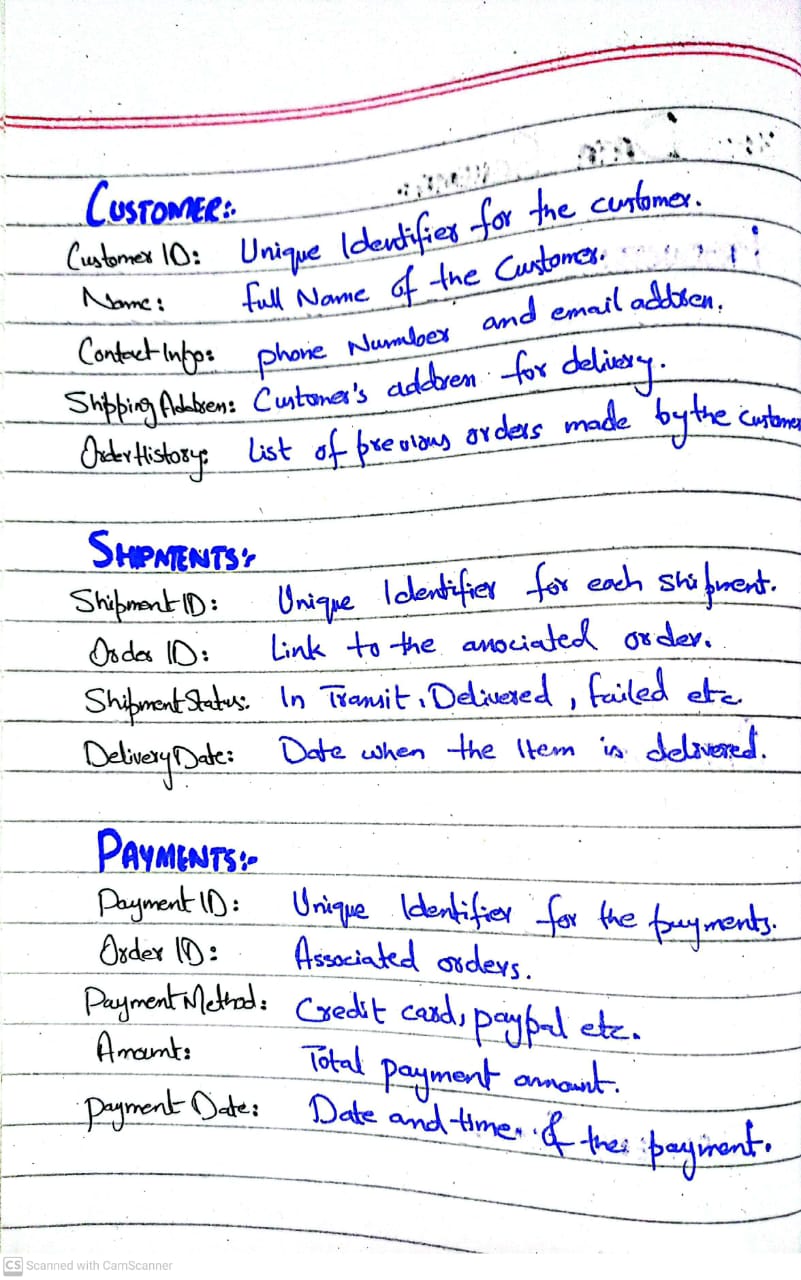 CUSTOMER:-
Customer ID: Unique Identifier for the customer.
Name: full Name of the Customer.
Contact Info: phone Number and email address.
Shipping Address: Customer's address for delivery.
Order History: List of previous orders made by the customer
SHIPMENTS:-
Shipment ID: Unique Identifier for each shipment.
Order ID: Link to the associated order.
Shipment Status: In Transit, Delivered, failed etc
Delivery Date: Date when the Item is delivered.
PAYMENTS:-
Payment ID: Unique Identifier for the payments.
Order ID: Associated orders.
Payment Method: Credit card, paypal etc.
Amount: Total payment amount.
payment Date: Date and time of the payment.
CS Scanned with CamScanner